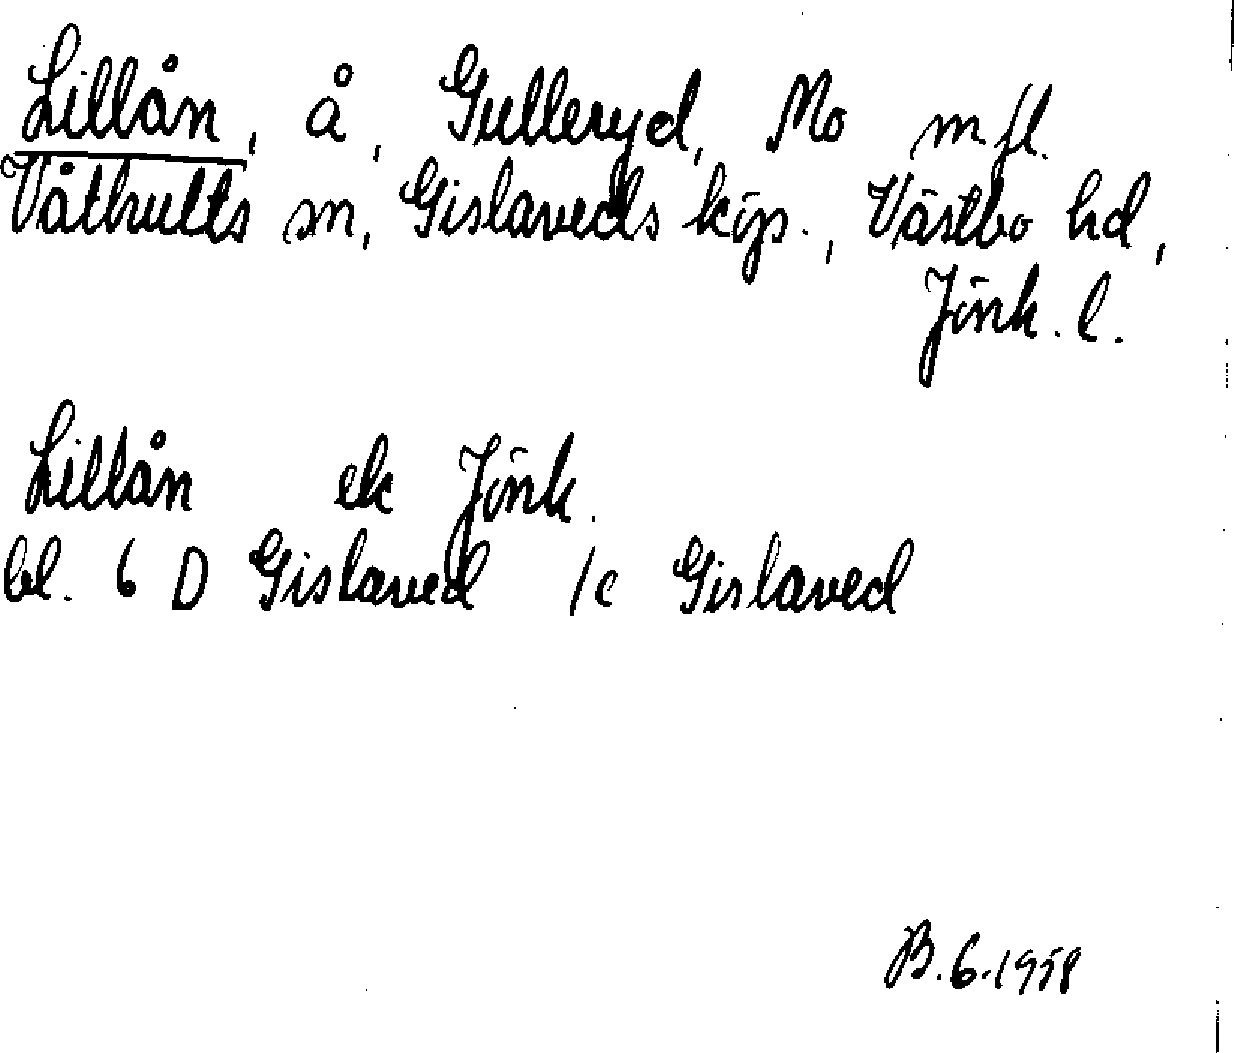 Lillån, å, Gulleryd, Mo m fl.
Våthults sn, Gislaveds köp., Västbo hd,
Jönk. l.
Lillån ek Jönk.
bl. 6 D Gislaved /c Gislaved
B. 6. 1958